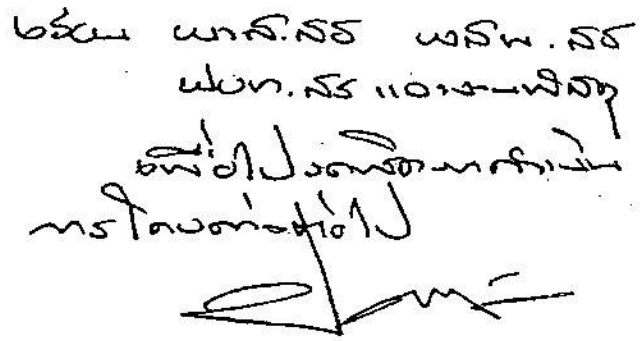 เรียน ผกส.สธ ผสพ.สธ
ผบท.สธ และงานพัสดุ
เพื่อโปรดพิจารณาดำเนิน
การโดยด่วนต่อไป